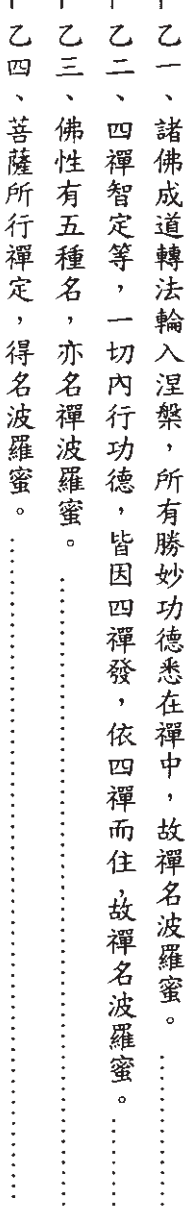 乙一、諸佛成道轉法輪入涅槃，所有勝妙功德悉在禪中，故禪名波羅蜜。…………………
乙二、四禪智定等，一切內行功德，皆因四禪發，依四禪而住，故禪名波羅蜜。…………
乙三、佛性有五種名，亦名禪波羅蜜。…………………………………………………
乙四、菩薩所行禪定，得名波羅蜜。……………………………………………………